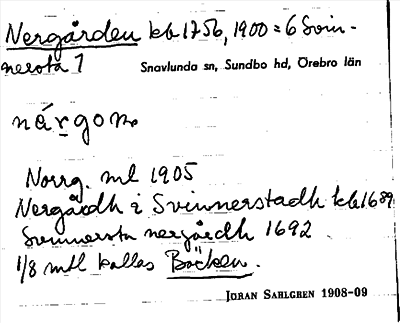 Nergården kb 1756, 1900 = 6 Svin-
nersta 1
Snavlunda sn, Sundbo hd, Örebro län
nárgon
Norrg. ml 1905
Nergårdh i Svinnerstadh kb 1689
Svinnersta nergårdh 1692
1/8 mtl kallas Bäcken.
JÖRAN SAHLGREN 1908-09